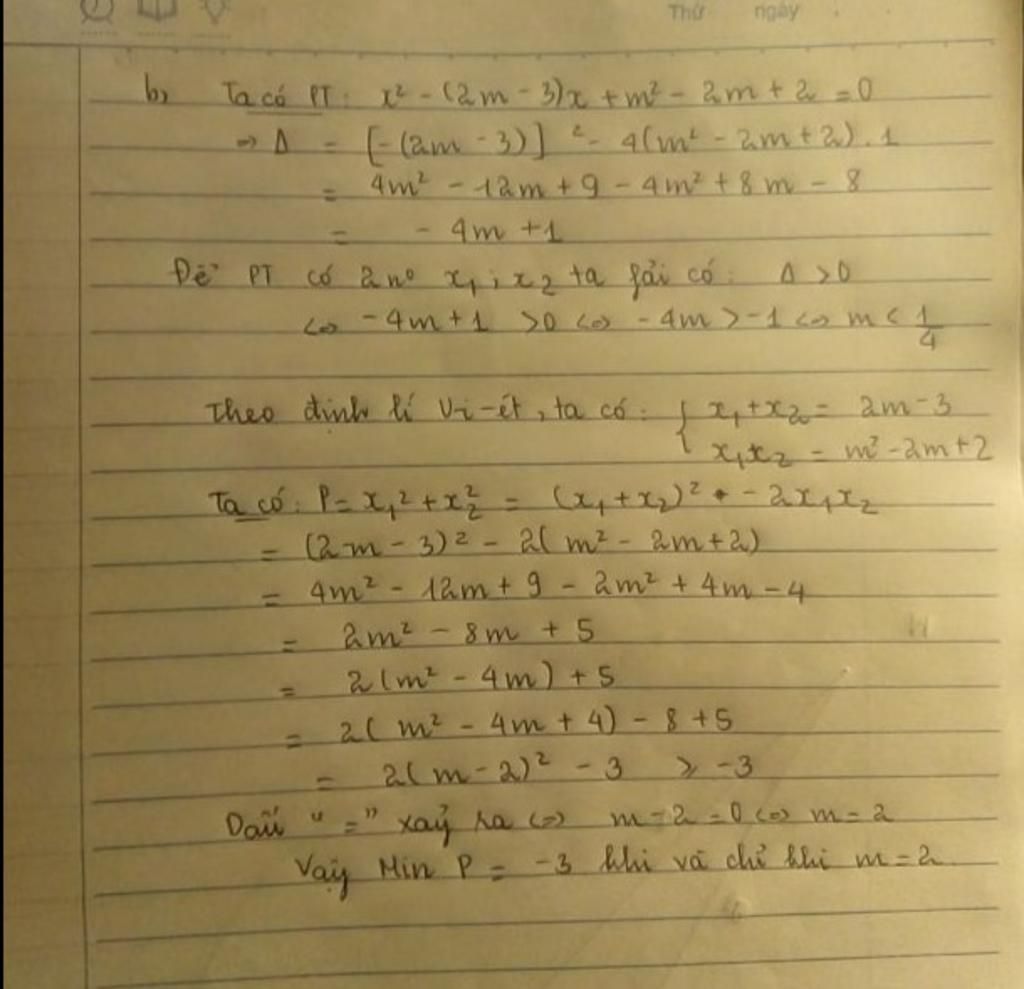 Thứ ngày
b, Ta có PT: x² - (2m - 3)x + m² - 2m + 2 = 0
=> Δ = [-(2m - 3)]² - 4(m² - 2m + 2) . 1
= 4m² - 12m + 9 - 4m² + 8m - 8
= - 4m + 1
Để PT có 2 n° x₁ ; x₂ ta fải có: Δ > 0
<=> -4m + 1 > 0 <=> -4m > -1 <=> m < 1/4
Theo định lí Vi-ét, ta có: { x₁ + x₂ = 2m - 3
x₁x₂ = m² - 2m + 2
Ta có: P = x₁² + x₂² = (x₁ + x₂)² - 2x₁x₂
= (2m - 3)² - 2(m² - 2m + 2)
= 4m² - 12m + 9 - 2m² + 4m - 4
= 2m² - 8m + 5
= 2(m² - 4m) + 5
= 2(m² - 4m + 4) - 8 + 5
= 2(m - 2)² - 3 ≥ -3
Dấu "=" xảy ra <=> m - 2 = 0 <=> m = 2
Vậy Min P = -3 khi và chỉ khi m = 2